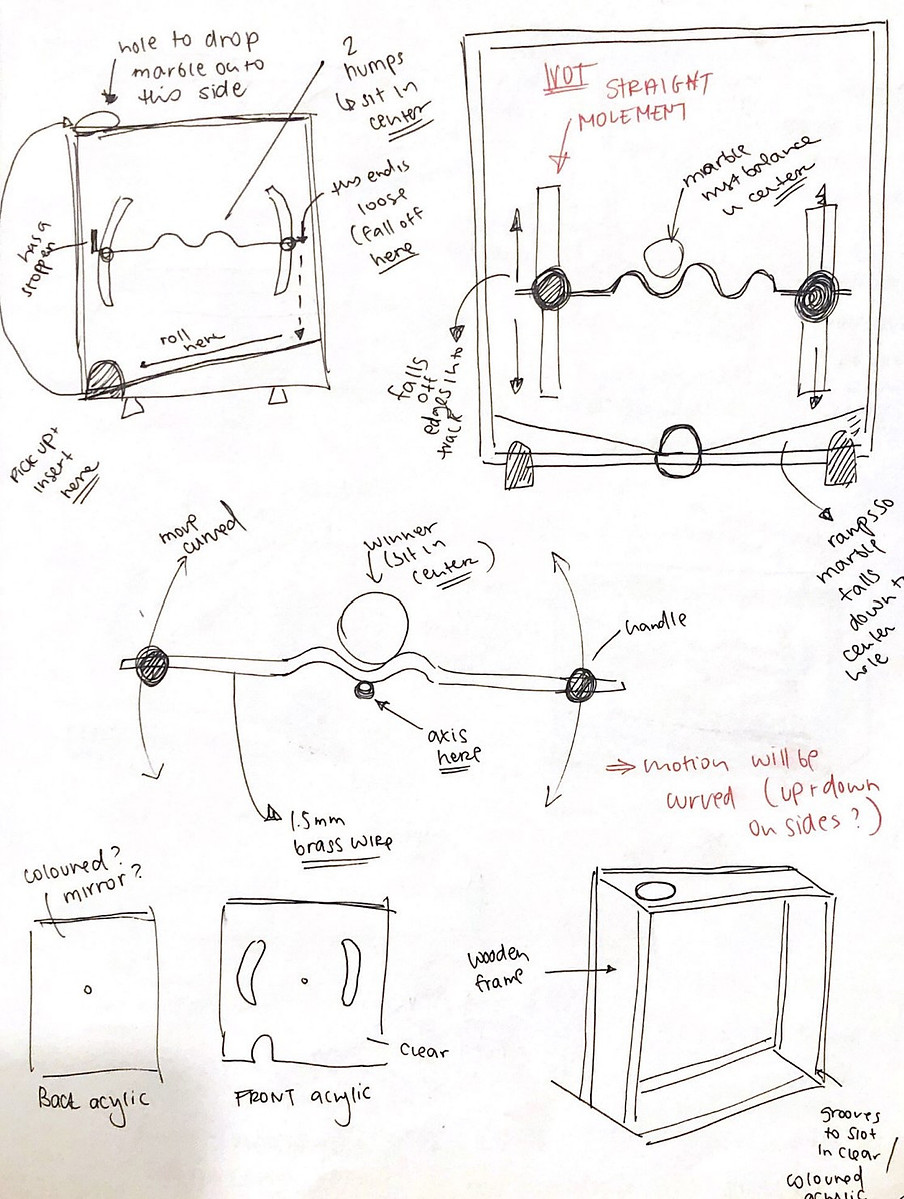 hole to drop
marble onto
this side
2
humps
↳ sit in
center
this end is
loose
(fall off
here
has a
stopper
roll
here
Pick up +
insert
here
NOT STRAIGHT
MOLEMENT
marble
mst balance
in center
falls
off
edges into
track
ramps so
marble
falls
down to
center
hole
move
curved
winner
(sit in
center)
handle
axis
here
1.5mm
brass wire
⇒ motion will be
curved (up + down
on sides?)
coloured?
mirror?
Back acylic
clear
FRONT acrylic
wooden
frame
grooves
to slot
in clear /
coloured
acrylic